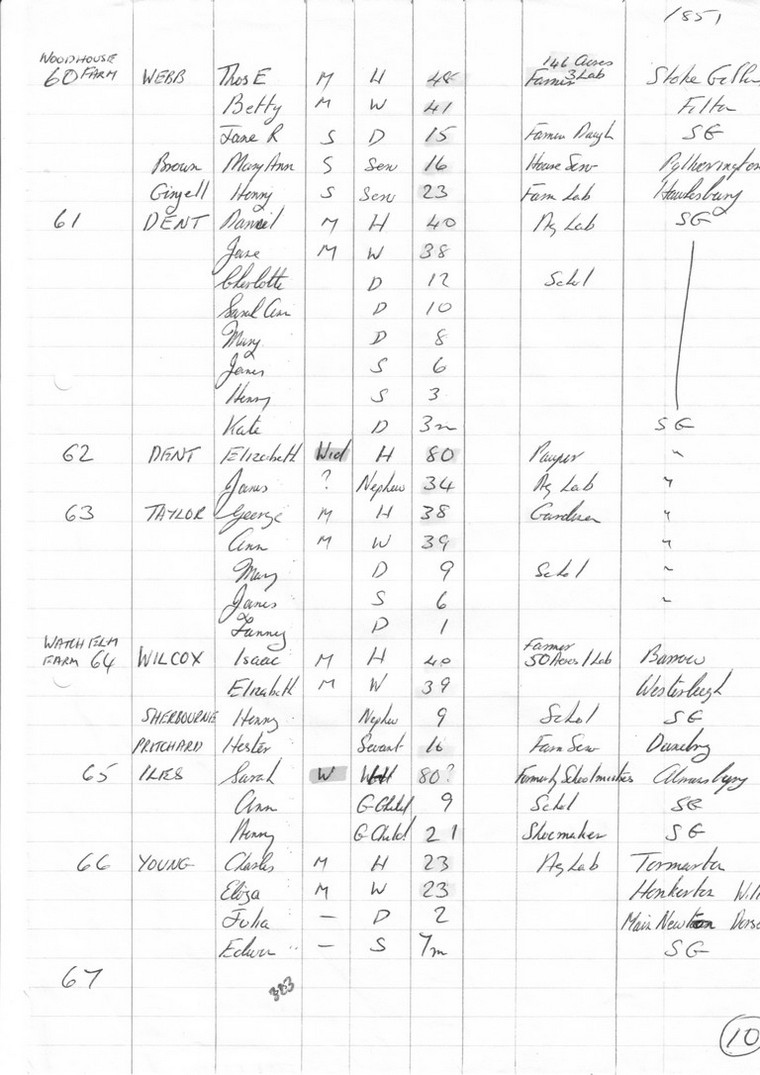 1851
WOODHOUSE 146 Acres
60 FARM WEBB Thos E M H 48 Farmer 3 Lab Stoke Giff
Betty M W 41 Filton
Jane R S D 15 Farmer Daugh SG
Brown Mary Ann S Serv 16 House Serv
Gingell Henry S Serv 23 Farm Lab Hawkesbury
61 DENT Daniel M H 40 Ag Lab SG
Jane M W 38
Charlotte D 12 Schol
Sarah Ann D 10
Mary D 8
James S 6
Henry S 3
Kate D 3m SG
62 DENT Elizabeth Wid H 80 Pauper "
James ? Nephew 34 Ag Lab "
63 TAYLOR George M H 38 Gardner "
Ann M W 39 "
Mary D 9 Schol "
James S 6 "
Fanney D 1
WATCH ELM Farmer
FARM 64 WILCOX Isaac M H 40 50 Acres 1 Lab Barrow
Elizabeth M W 39 Westerleigh
SHERBOURNE Henry Nephew 9 Schol SG
PRITCHARD Hester Servant 16 Farm Serv
65 ILES Sarah W 80? Formerly Schoolmistress
Ann G-Child 9 Schol SG
Henry G-Child 21 Shoemaker SG
66 YOUNG Charles M H 23 Ag Lab Tormarton
Eliza M W 23 Wil
Julia — D 2 Newton Dors
Edwin — S 7m SG
67
383
10